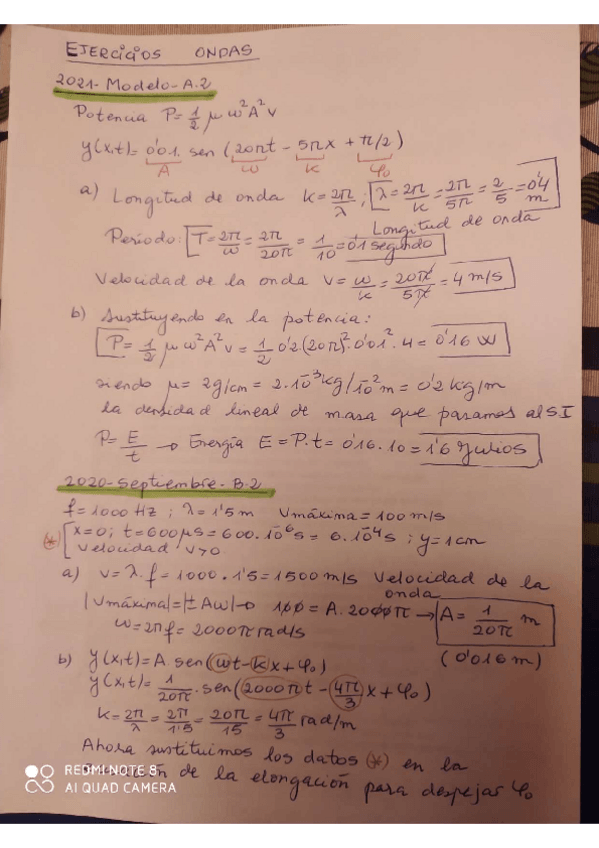 EJERCICIOS ONDAS
2021-Modelo-A.2
Potencia P=½ μ ω²A²v
y(x,t)= 0'01 sen (20πt - 5πx + π/2)
A ω k φ₀
a) Longitud de onda k=2π/λ ; λ=2π/k=2π/5π=2/5=0'4 m
Longitud de onda
Período: T=2π/ω=2π/20π=1/10=0'1 segundo
Velocidad de la onda v=ω/k=20π/5π=4 m/s
b) Sustituyendo en la potencia:
P=½ μ ω²A²v=½ 0'2(20π)²·0'01²·4=0'16 W
siendo μ=2g/cm=2·10⁻³kg/10⁻²m=0'2 kg/m
la densidad lineal de masa que pasamos al S.I
P=E/t → Energía E=P·t=0'16·10=1'6 Julios
2020-Septiembre-B.2
f=1000 Hz ; λ=1'5m Vmáxima=100m/s
(*) x=0; t=600μs=600·10⁻⁶s=6·10⁻⁴s ; y=1cm
Velocidad v>0
a) v=λ·f=1000·1'5=1500 m/s Velocidad de la onda
|Vmáxima|=|±Aω|→ 100=A·2000π → A=1/20π m
ω=2πf=2000π rad/s (0'016 m)
b) y(x,t)=A sen(ωt-kx+φ₀)
y(x,t)=1/20π·sen(2000πt-4π/3 x+φ₀)
k=2π/λ=2π/1'5=20π/15=4π/3 rad/m
Ahora sustituimos los datos (*) en la
de la elongación para despejar φ₀
REDMI NOTE 8
AI QUAD CAMERA